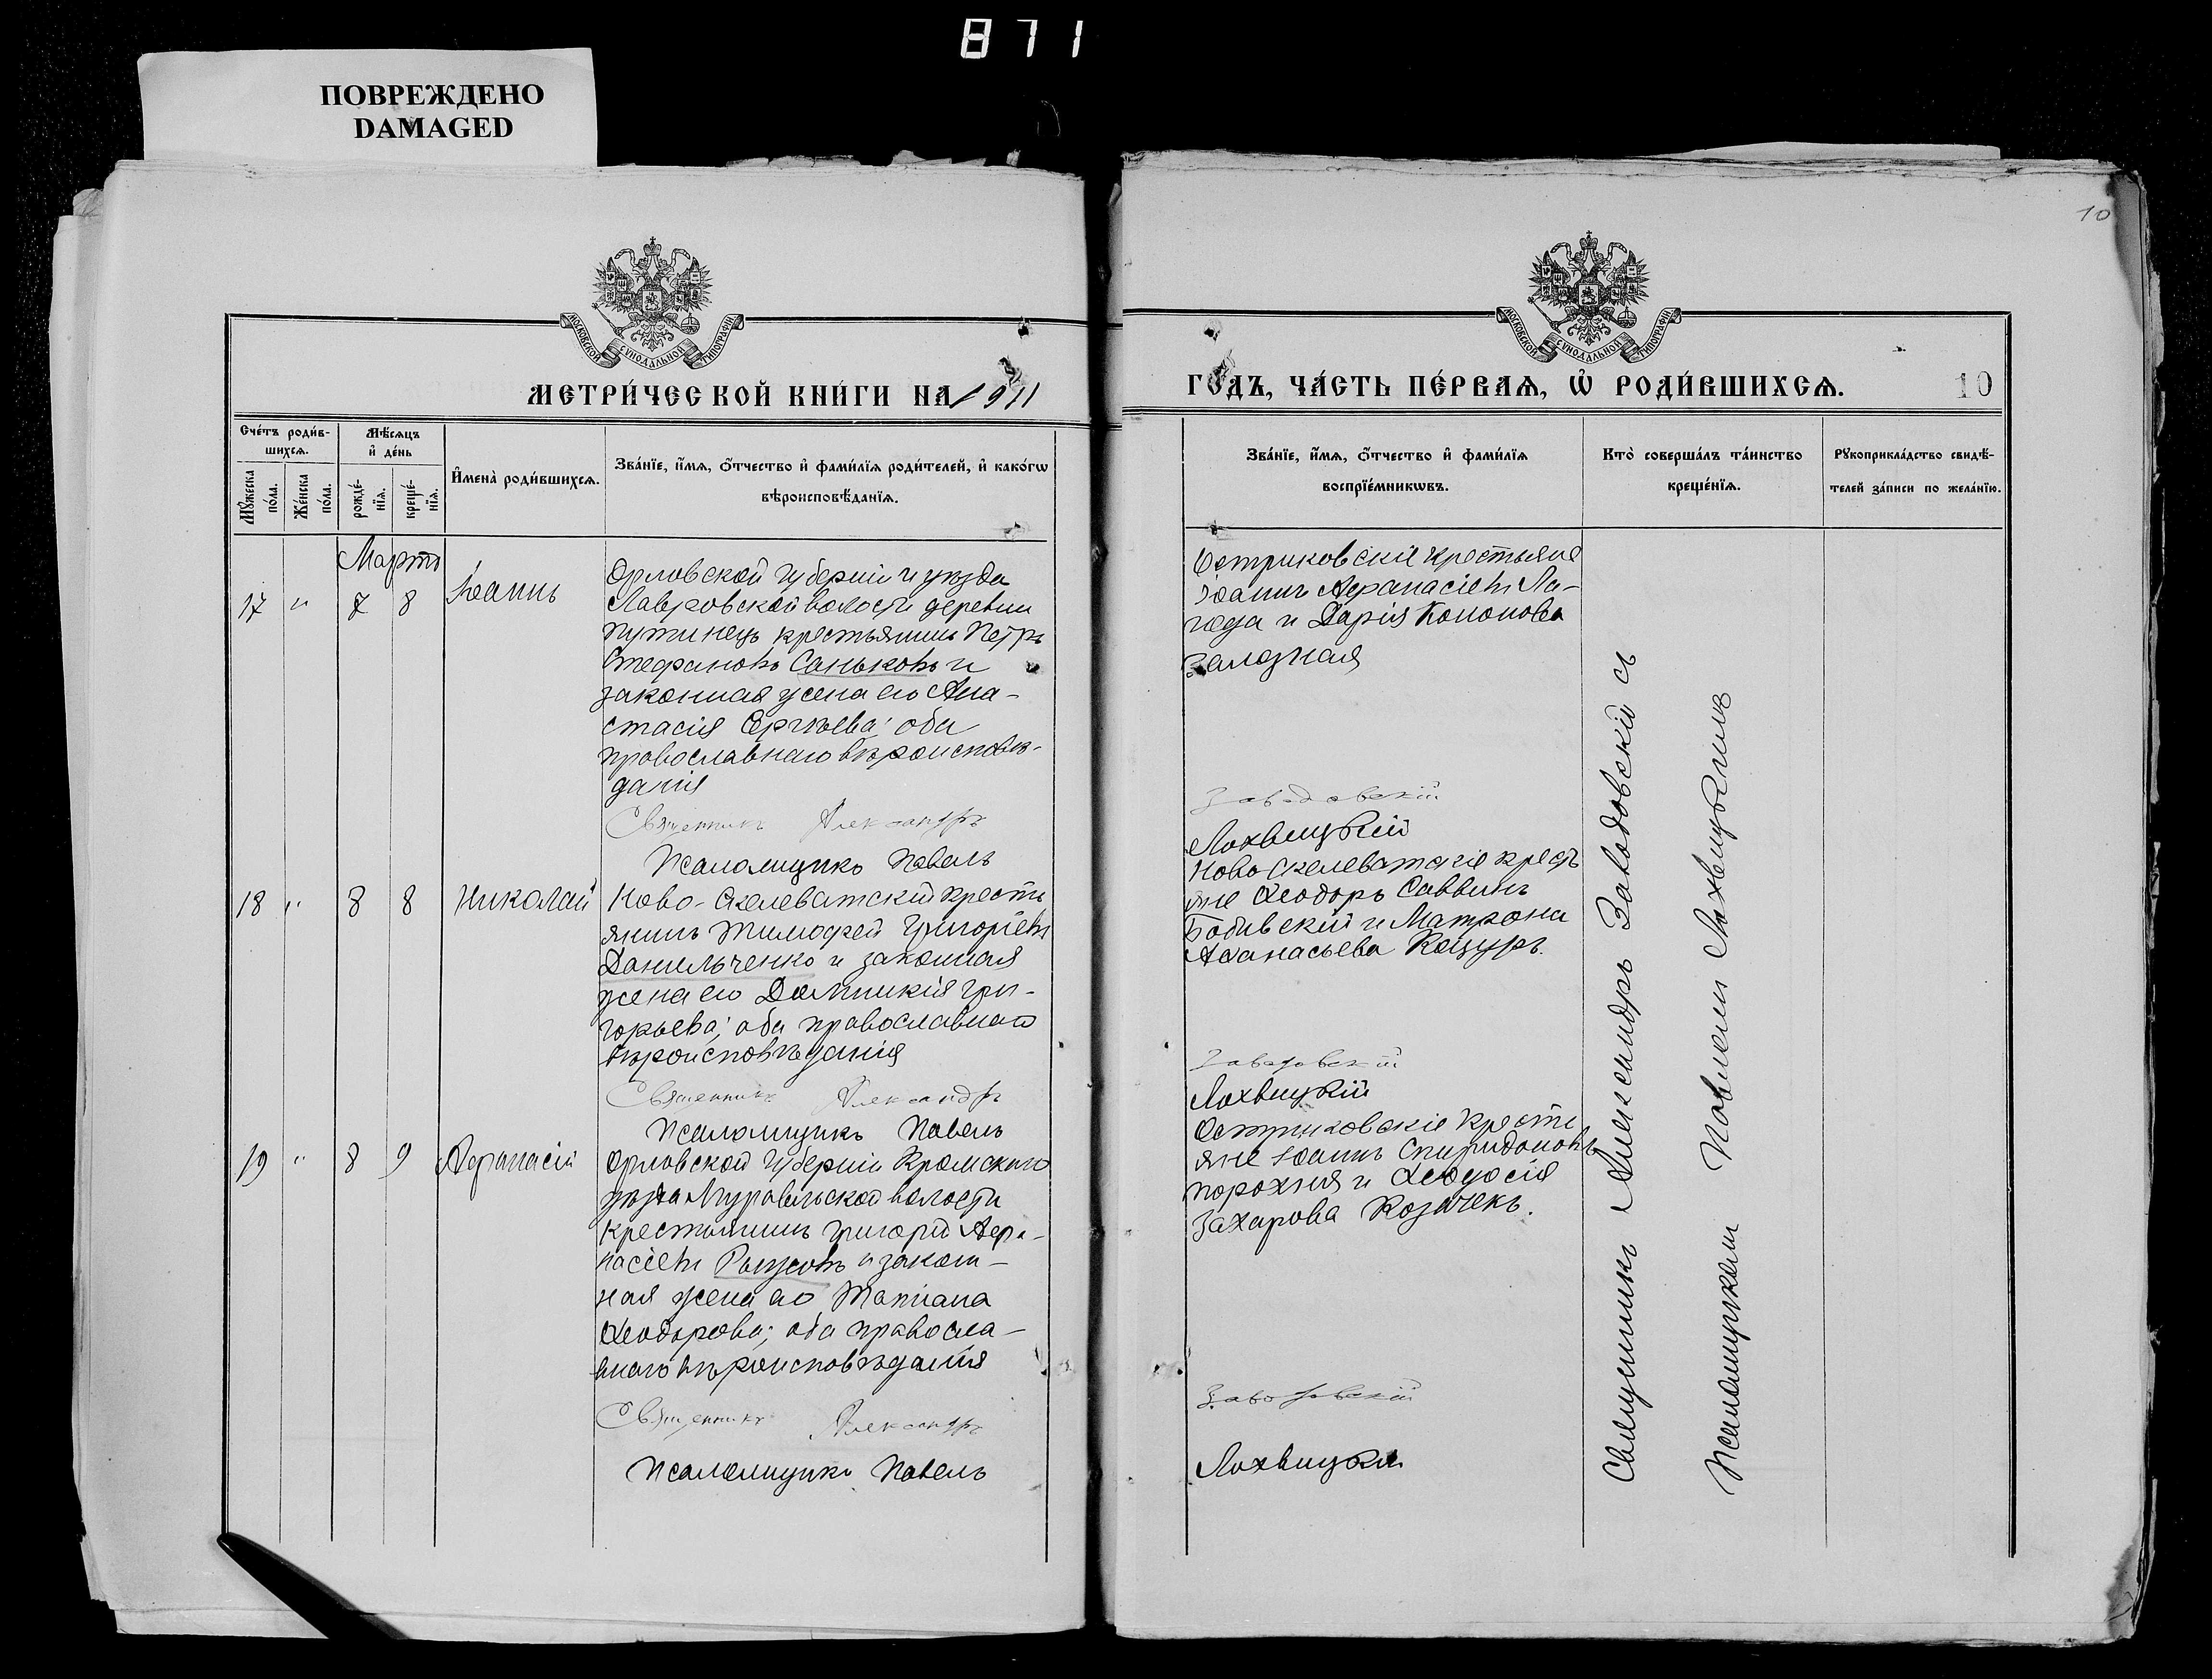 871
ПОВРЕЖДЕНО
DAMAGED
10
МОСКОВСКОЙ СѴНОДАЛЬНОЙ ТИПОГРАФІИ
МОСКОВСКОЙ СѴНОДАЛЬНОЙ ТИПОГРАФІИ
МЕТРИ́ЧЕСКОЙ КНИ́ГИ НА 1911
ГО́ДЪ, ЧА́СТЬ ПЕ́РВАѦ, Ѡ҆ РОДИ́ВШИХСѦ.
10
Сче́тъ роди́в-
шихсѧ.
Мꙋ́жеска
по́ла.
Же́нска
по́ла.
Мѣ́сѧцъ
и҆ де́нь
рожде́-
нїѧ.
креще́-
нїѧ.
И҆мена̀ роди́вшихсѧ.
Зва́нїе, и҆́мѧ, ѻ҆́тчество и҆ фами́лїѧ роди́телей, и҆ како́гѡ
вѣроисповѣ́данїѧ.
Зва́нїе, и҆́мѧ, ѻ҆́тчество и҆ фами́лїѧ
воспрїе́мникѡвъ.
Кто̀ соверша́лъ та́инство
креще́нїѧ.
Рꙋкоприкла́дство свидѣ́-
телей за́писи по жела́нїю.
Мартъ
17 " 7 8 Іоаннъ
Орловской губерніи и уѣзда
Лавровской волости деревни
Путимецъ крестьянинъ Петръ
Стефановъ Саньковъ и
законная жена его Ана-
стасія Сергѣева; оба
православнаго вѣроисповѣ-
данія
Священникъ Александръ
Псаломщикъ Павелъ
Остриковскіе крестьяне
Іоаннъ Афанасіевъ Ла-
года и Дарія Кононова
Залозная
Заводовскій
Лохвицкій
18 " 8 8 Николай
Ново-Скелеватскій крестъ
янинъ Тимофей Григоріевъ
Данильченко и законная
жена его Домникія Гри-
горьева; оба православнаго
вѣроисповѣданія
Священникъ Александръ
Псаломщикъ Павелъ
Ново Скелеватскіе крестъ
яне Ѳеодоръ Саввинъ
и Матрона
Аѳанасьева Коцуръ.
Заводовскій
Лохвицкій
19 " 8 9 Афанасій
Орловской губерніи Кромскаго
уѣзда Муравльской волости
крестьянинъ Григорій Афа-
насіевъ Рыжовъ и закон-
ная жена его Татіана
Ѳеодорова; оба правосла-
внаго вѣроисповѣданія
Священникъ Александръ
Псаломщикъ Павелъ
Остриковскіе кресть
яне Іоаннъ Спиридоновъ
Порохня и Ѳеодосія
Захарова Козачекъ.
Заводовскій
Лохвицкій
Священникъ Александръ Заводовскій съ
Псаломщикомъ Павломъ Лохвицкимъ